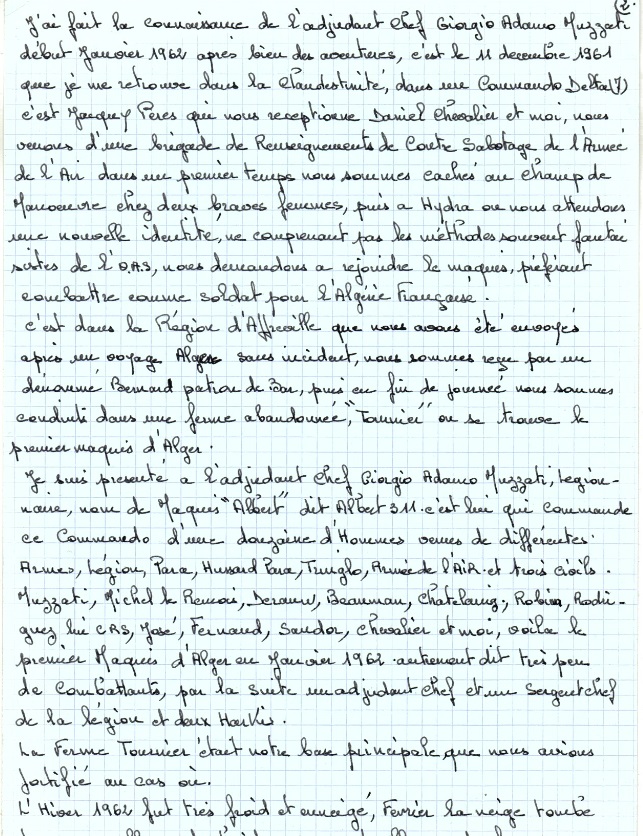 (2.
J'ai fait la connaissance de l'adjudant Chef Giorgio Adamo Muzzati
début Janvier 1962 après bien des aventures, c'est le 11 decembre 1961
que je me retrouve dans la Clandestinité, dans un Commando Delta(7)
c'est Jacquy Péres qui nous receptionne Daniel Chevalier et moi, nous
venons d'une brigade de Renseignements de Contre Sabotage de l'Armée
de l'Air dans un premier temps nous sommes cachés au Champ de
Manoeuvre chez deux braves femmes, puis a Hydra ou nous attendons
une nouvelle identité, ne comprenant pas les méthodes souvent fantai
sistes de l'O.A.S, nous demandons a rejoindre le maquis, préférant
combattre comme soldat pour l'Algérie Française.
c'est dans la Région d'Affreville que nous avons été envoyés
après un voyage Alger sans incident, nous sommes reçu par un
dénommé Bernard patron de Bar, puis en fin de journée nous sommes
conduits dans une ferme abandonnée, "Tournier" ou se trouve le
premier maquis d'Alger.
Je suis presenté a l'adjudant Chef Giorgio Adamo Muzzati, Legion-
naire, nom de Maquis "Albert" dit Albert 311. c'est lui qui commande
ce Commando d'une douzaine d'Hommes venus de différentes.
Armes, Légion, Para, Hussard Para, Tringlo, Armée de l'AiR. et trois civils.
Muzzati, Michel le Remois, Beauman, Robin, Rodri-
guez lui CRS, José, Fernand, Sandor, Chevalier et moi, voila le
premier Maquis d'Alger en Janvier 1962. autrement dit très peu
de Combattants, par la suite un adjudant Chef et un Sergent chef
de la légion et deux Harkis.
La Ferme Tournier était notre base principale que nous avions
fortifié au cas où.
L'Hiver 1962 fut très froid et enneigé, Fevrier la neige tombe